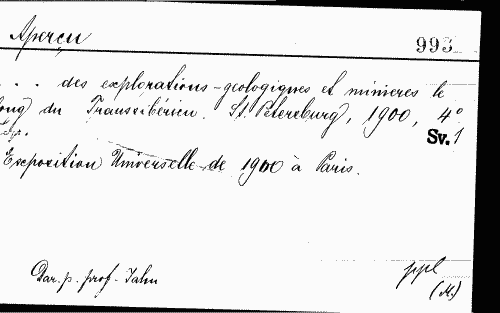 Aperçu
993
. . . des explorations-géologiques et minières le
long du Transsibérien. St. Petersburg, 1900, 4°
Sv. 1
Exposition Universelle de 1900 à Paris.
Dar. p. prof. Jahn
ppl
(M.)